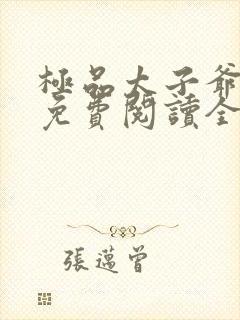 極品太子爺
免費閱讀全
張邁曾